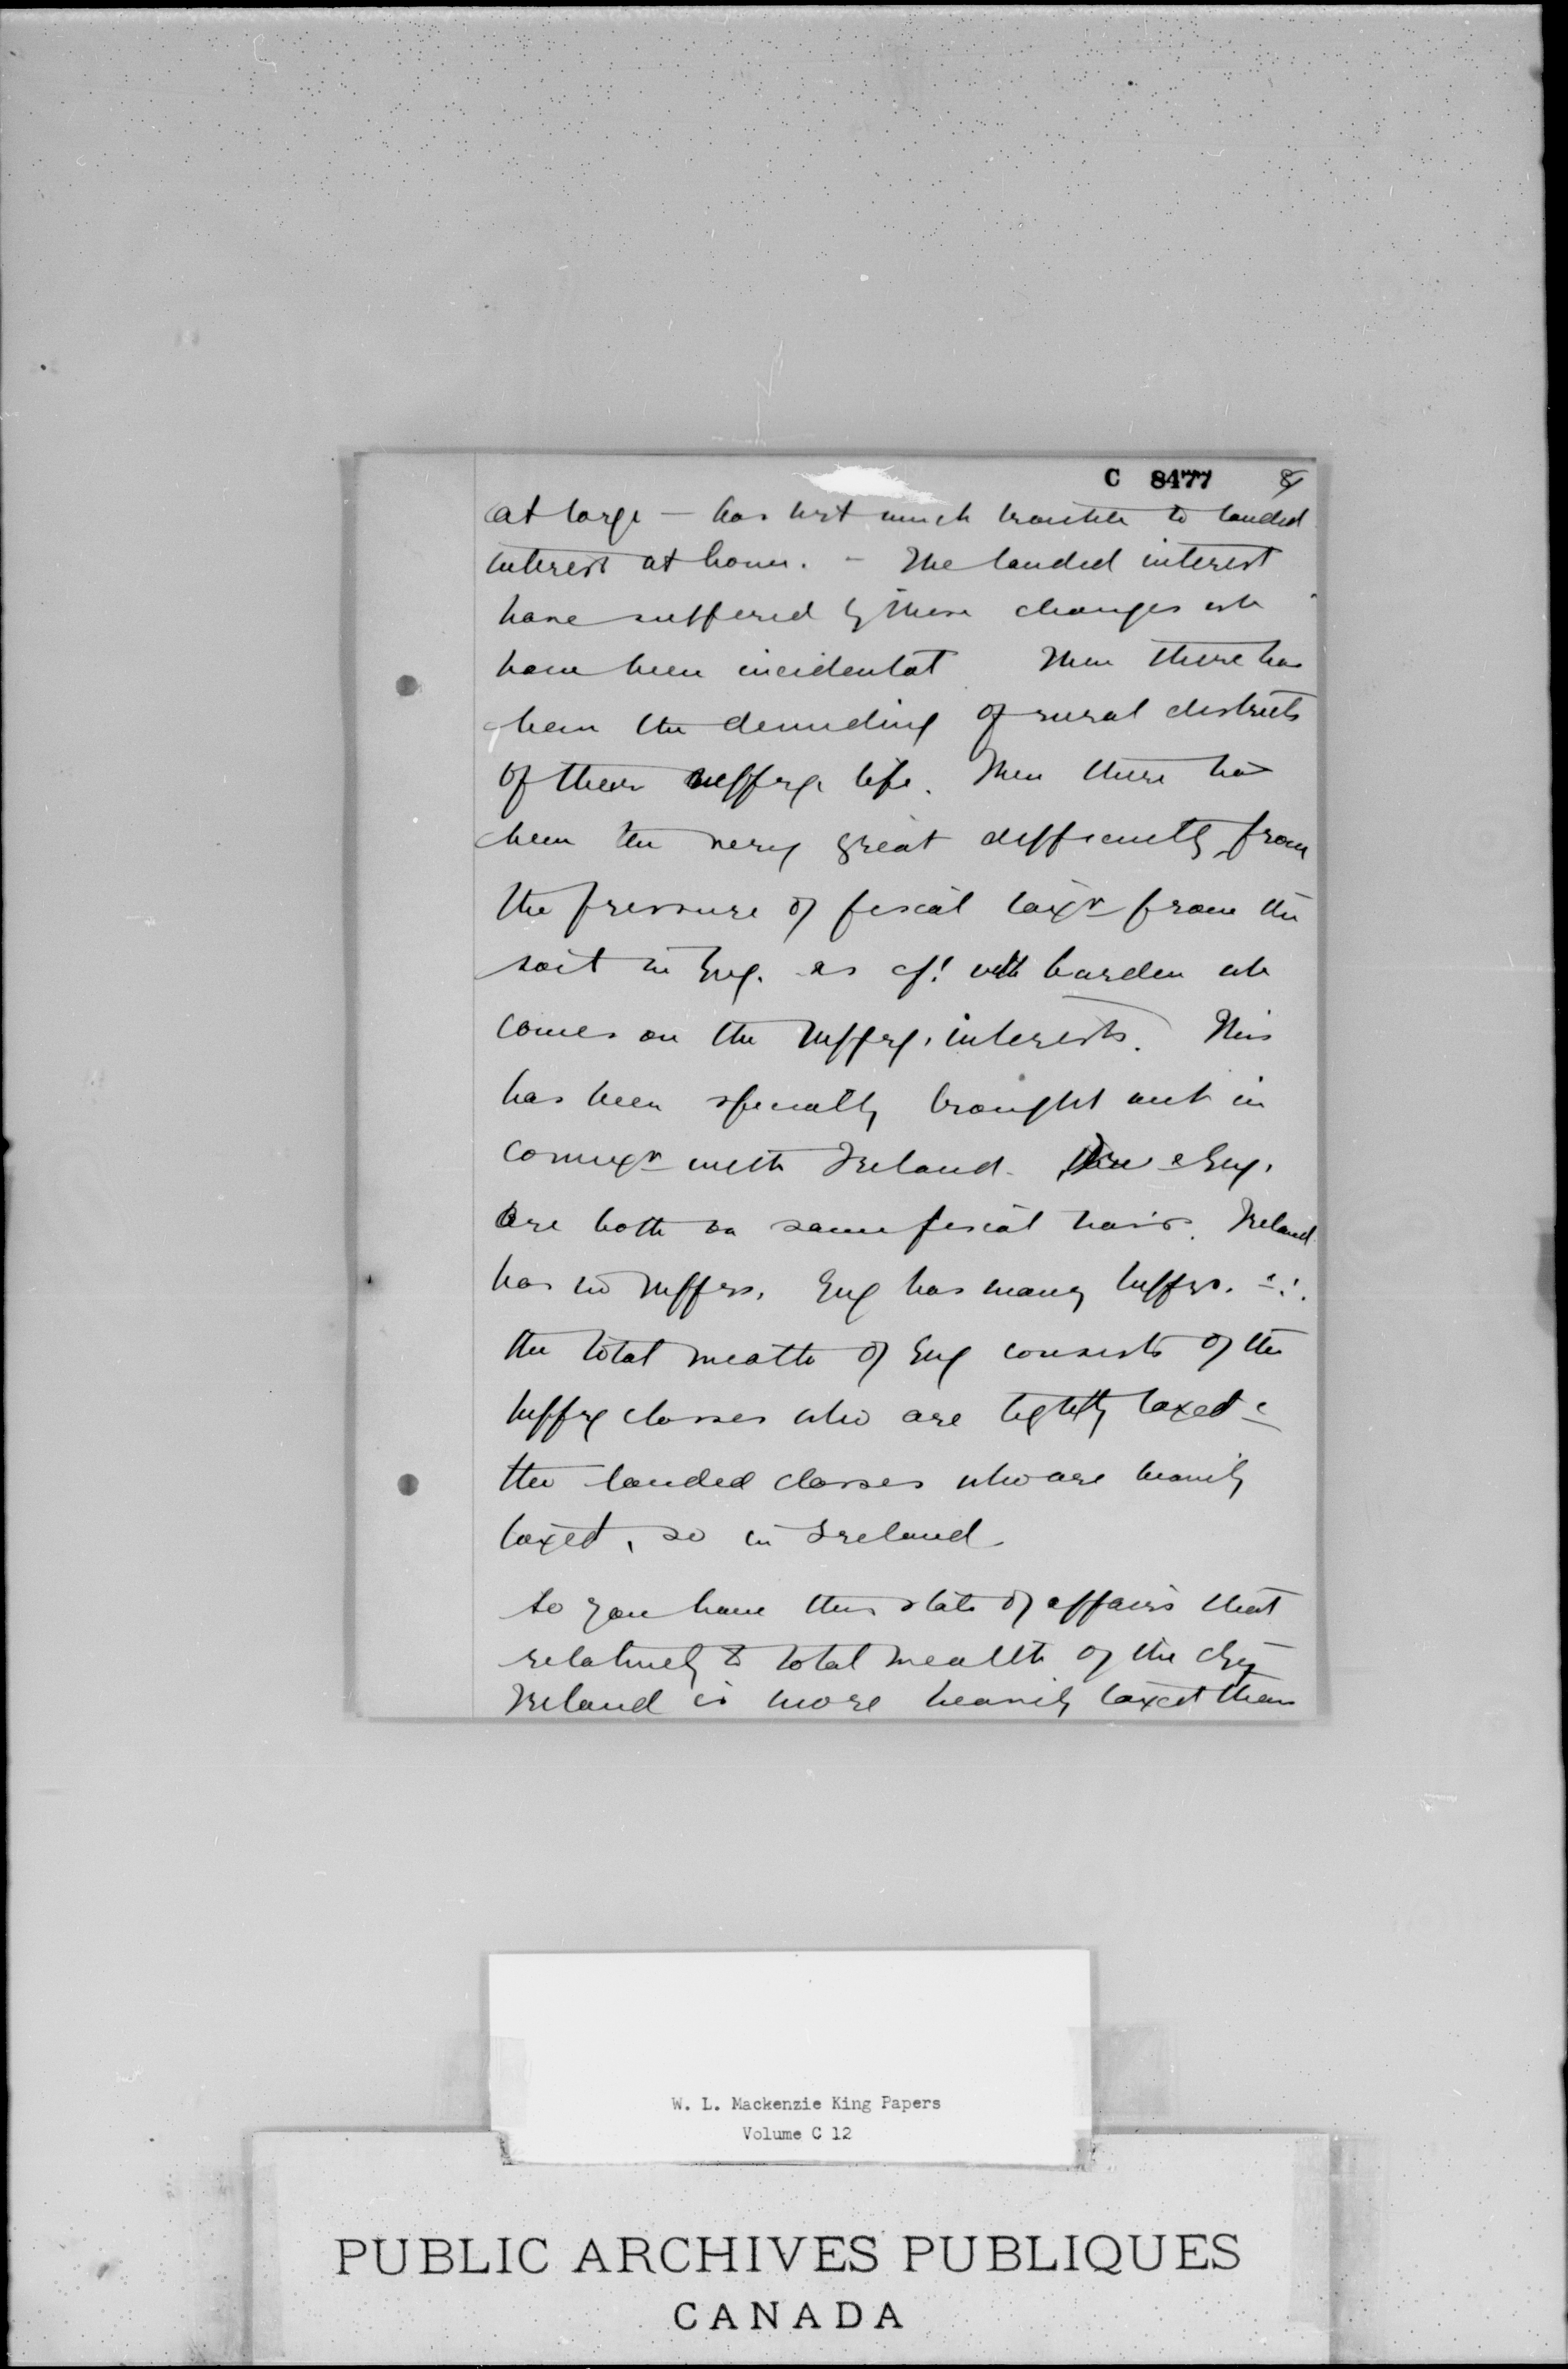 C 8477 8
at large — has brt much trouble to landed
interest at home. - The landed interest
have suffered by these changes wh
have been incidental Then there has
been the denuding of rural districts
of their mffrg. life. Then there has
been the very great difficulty from
the pressure of fiscal taxn from the
soil in Eng. as cf! with burden wh
comes on the mffrg. interests. This
has been specially brought out in
connexn with Ireland. & Eng.
are both on same fiscal basis. Ireland
has no mffrs. Eng has many mffrs. & ∴
the total wealth of Eng consists of the
mffrg classes who are lightly taxed &
the landed classes who are heavily
taxed, so in Ireland
So you have this state of affairs that
relatively to total wealth of the cty
Ireland is more heavily taxed than
W. L. Mackenzie King Papers
Volume C 12
PUBLIC ARCHIVES PUBLIQUES
CANADA